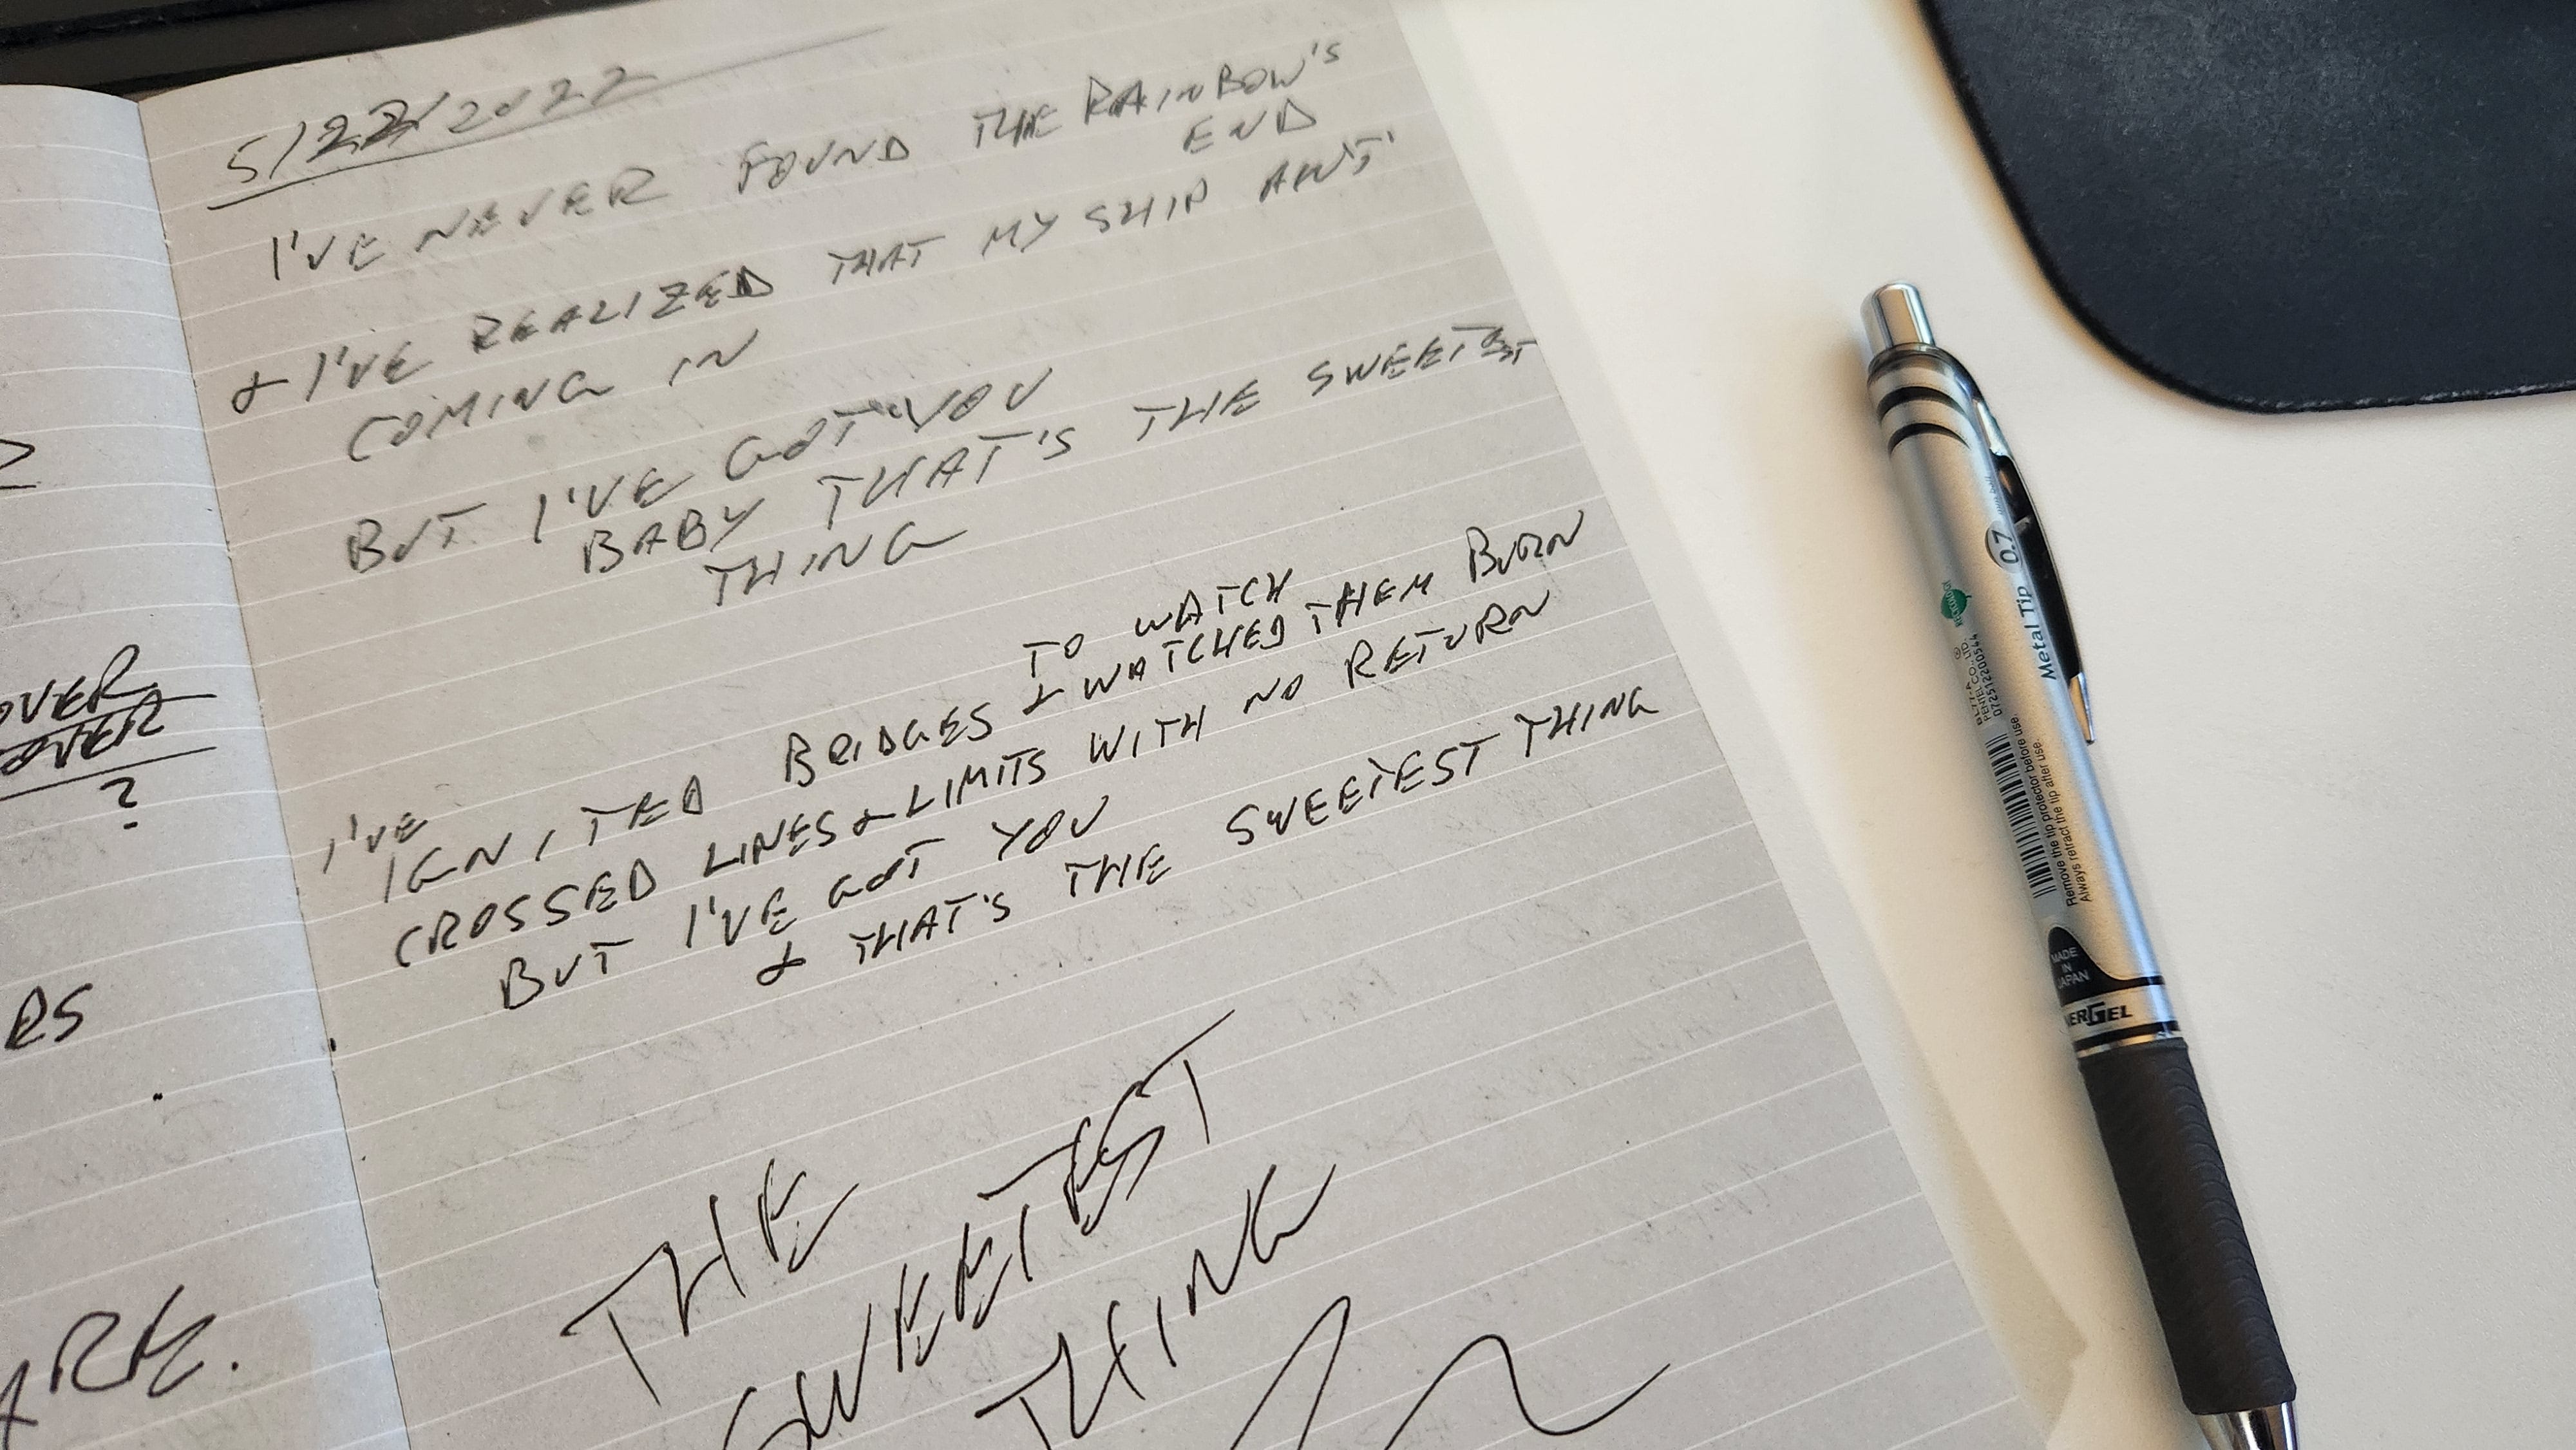 5/22/2022
I'VE NEVER FOUND THE RAINBOW'S
END
& I'VE REALIZED THAT MY SHIP AIN'T
COMING IN
BUT I'VE GOT YOU
BABY THAT'S THE SWEETEST
THING
TO WATCH
I'VE
IGNITED BRIDGES & WATCHED THEM BURN
CROSSED LINES & LIMITS WITH NO RETURN
BUT I'VE GOT YOU
& THAT'S THE SWEETEST THING
THE
SWEETEST
THING
OVER
OVER
?
RS
ARE.
0.7
Metal Tip
PENTEL CO., LTD.
Remove the tip protector before use.
Always retract the tip after use.
MADE
IN
JAPAN
ERGEL